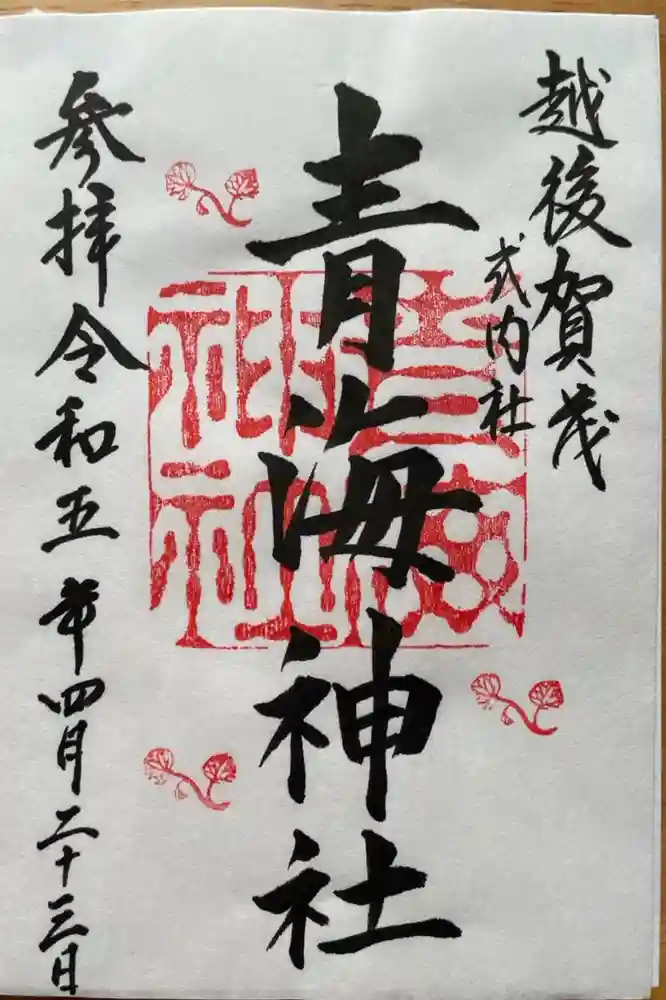 越後賀茂
式内社
青海神社
青海神社
参拝令和五年四月二十三日